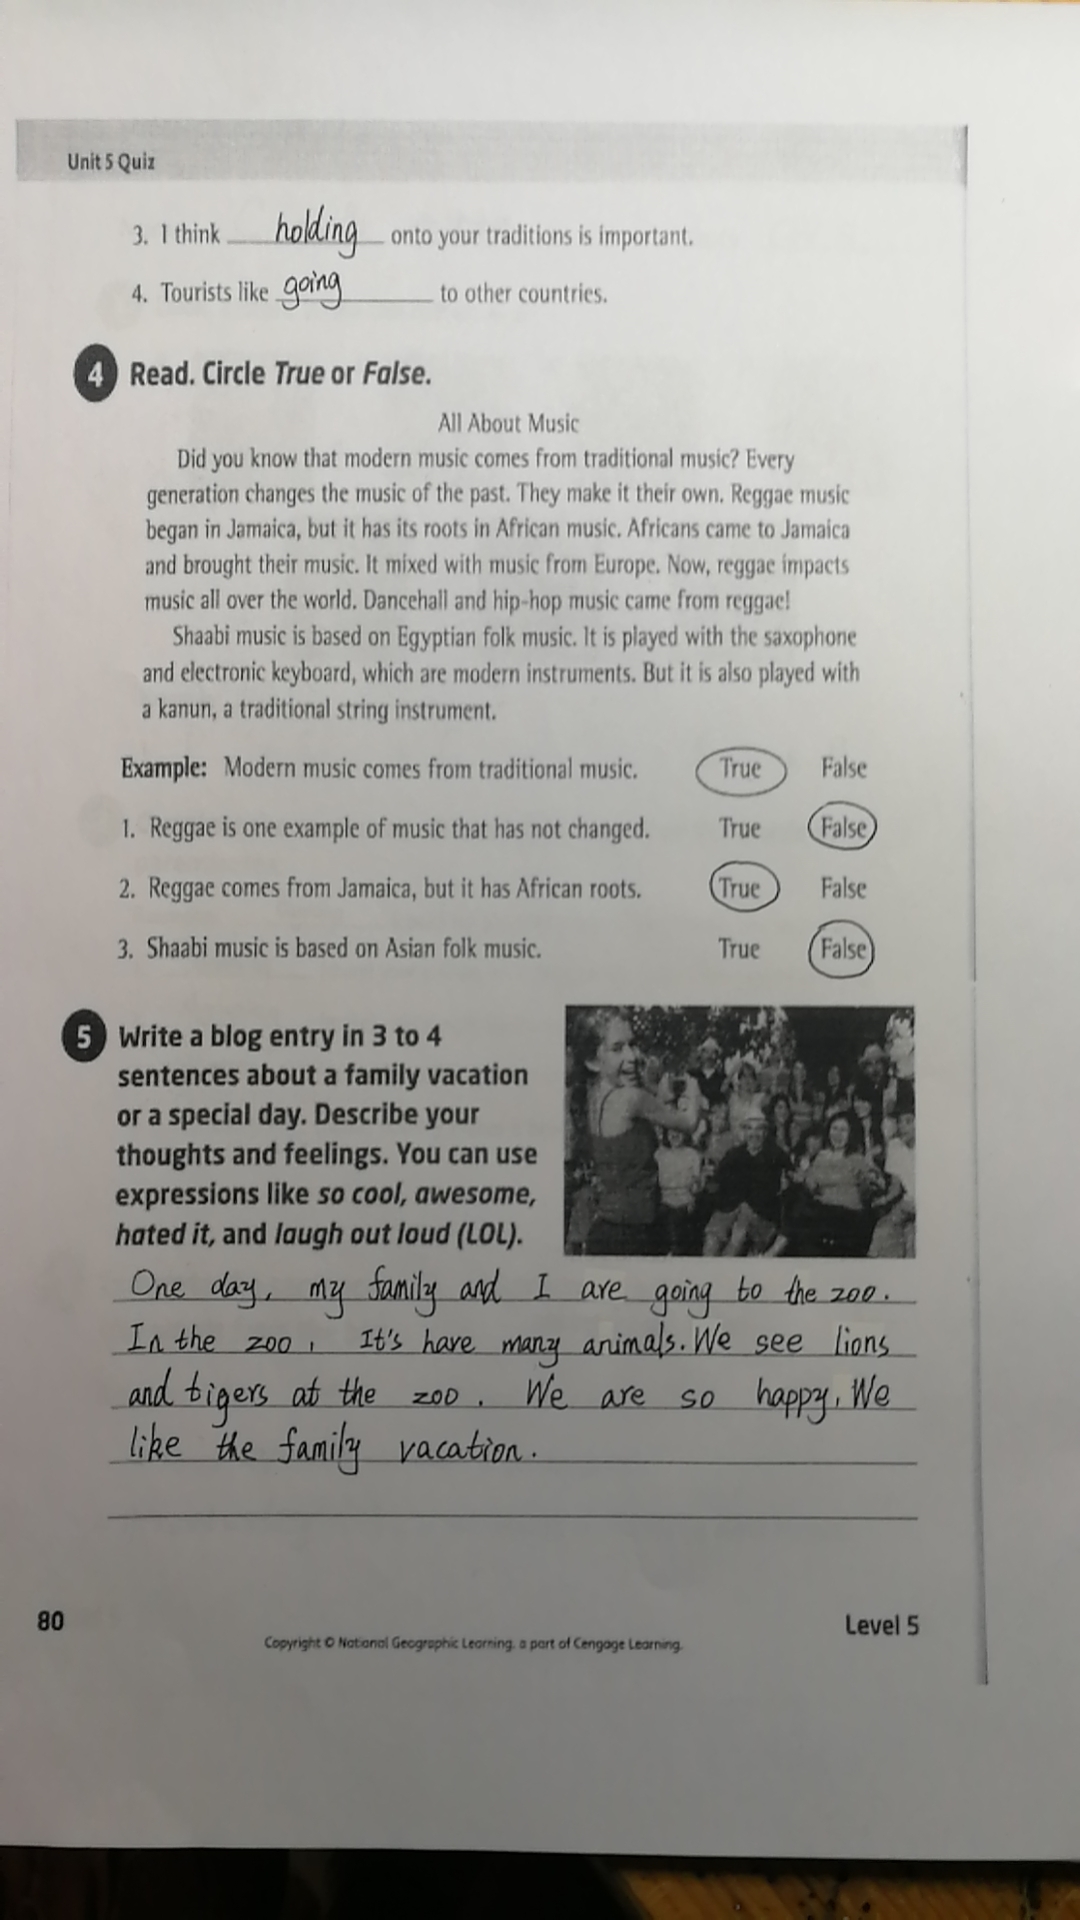 Unit 5 Quiz
3. I think holding onto your traditions is important.
4. Tourists like going to other countries.
4 Read. Circle True or False.
All About Music
Did you know that modern music comes from traditional music? Every
generation changes the music of the past. They make it their own. Reggae music
began in Jamaica, but it has its roots in African music. Africans came to Jamaica
and brought their music. It mixed with music from Europe. Now, reggae impacts
music all over the world. Dancehall and hip-hop music came from reggae!
Shaabi music is based on Egyptian folk music. It is played with the saxophone
and electronic keyboard, which are modern instruments. But it is also played with
a kanun, a traditional string instrument.
Example: Modern music comes from traditional music. True False
1. Reggae is one example of music that has not changed. True False
2. Reggae comes from Jamaica, but it has African roots. True False
3. Shaabi music is based on Asian folk music. True False
5 Write a blog entry in 3 to 4
sentences about a family vacation
or a special day. Describe your
thoughts and feelings. You can use
expressions like so cool, awesome,
hated it, and laugh out loud (LOL).
One day, my family and I are going to the zoo.
In the zoo, It's have many animals. We see lions
and tigers at the zoo. We are so happy. We
like the family vacation.
80
Level 5
Copyright © National Geographic Learning, a part of Cengage Learning.